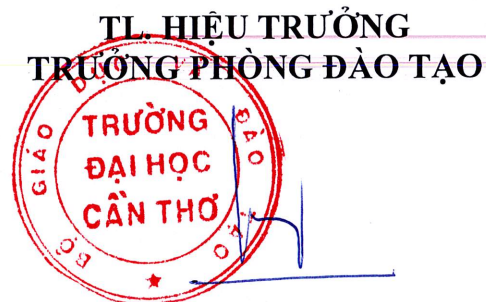 TL. HIỆU TRƯỞNG
TRƯỞNG PHÒNG ĐÀO TẠO
BỘ GIÁO DỤC VÀ ĐÀO TẠO
TRƯỜNG
ĐẠI HỌC
CẦN THƠ